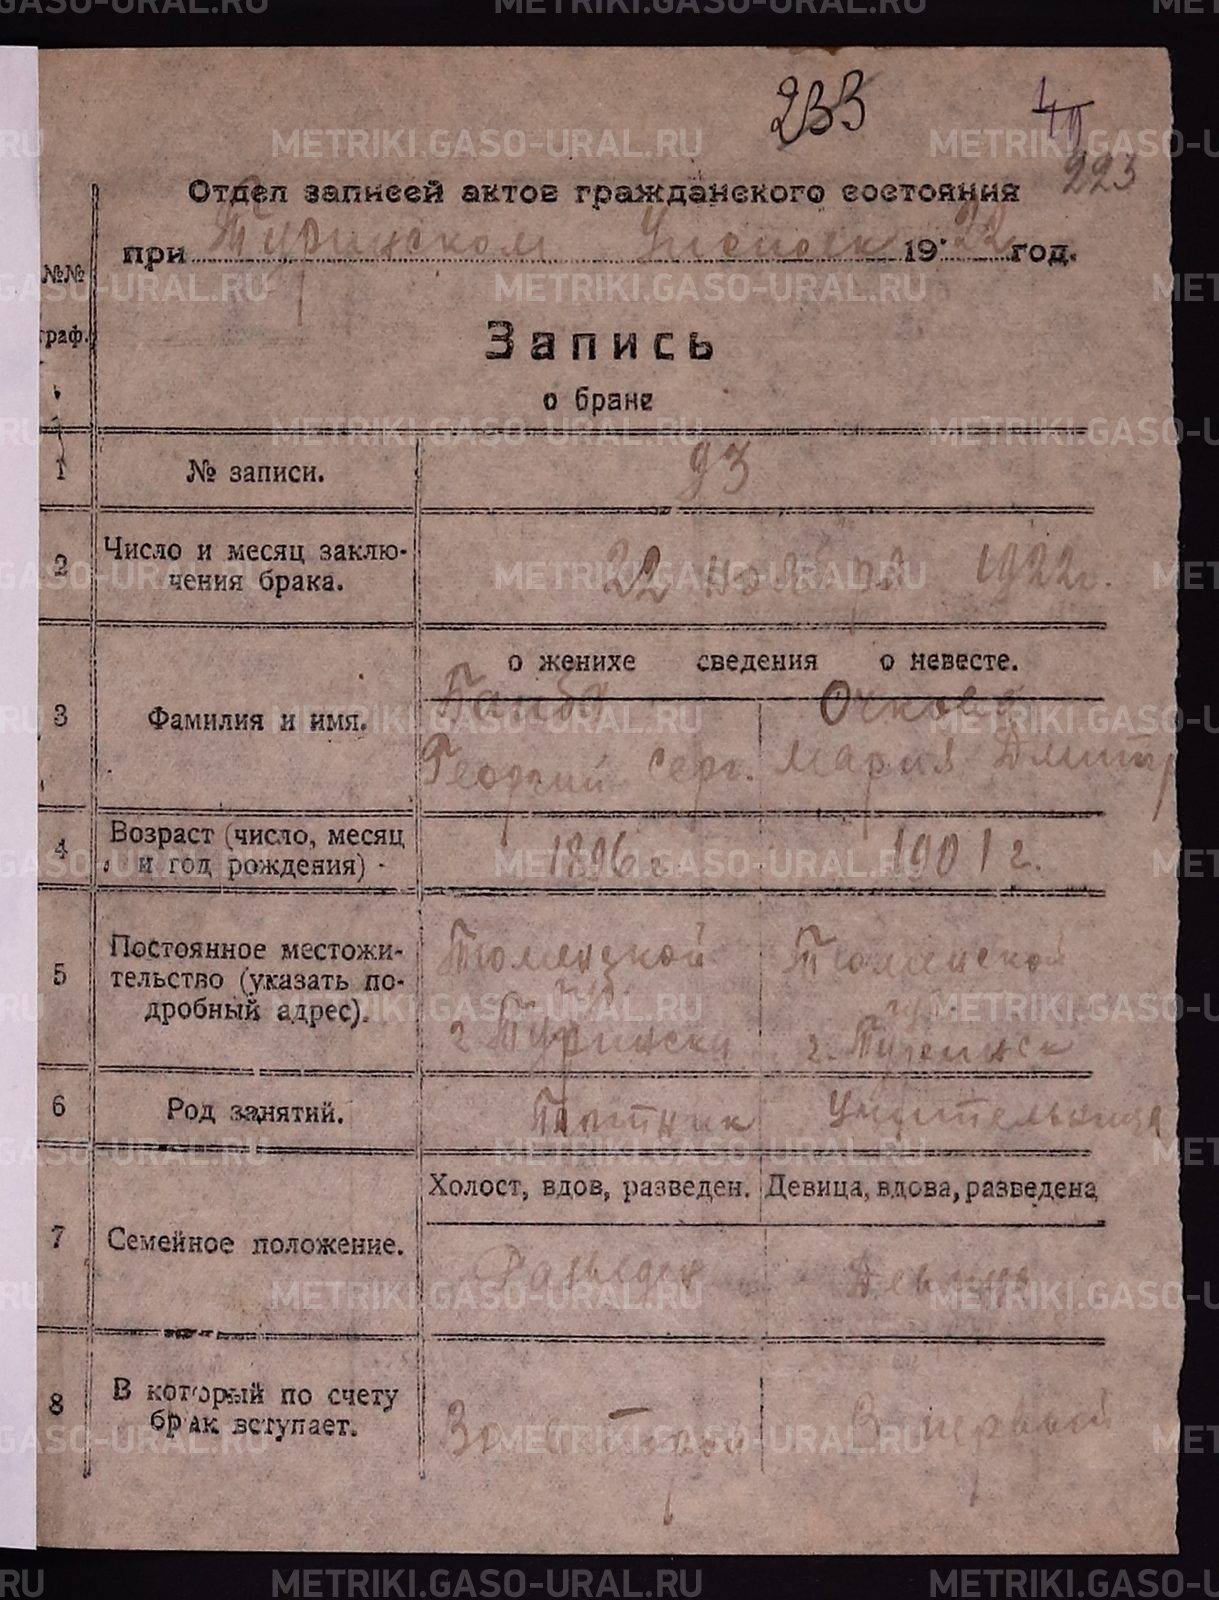 233
40
223
Отдел записей актов гражданского состояния
при Туринском 1922 год.
№№
граф.
Запись
о браке
1 № записи. 93
2 Число и месяц заклю-
чения брака. 22 ноября 1922 г.
о женихе сведения о невесте.
3 Фамилия и имя. Очкова
Георгий Серг. Мария Дмитр
4 Возраст (число, месяц
и год рождения) 1896 г. 1901 г.
5 Постоянное местожи-
тельство (указать по-
дробный адрес).
Тюменской Тюменской
губ. губ.
г. Туринск г. Туринск
6 Род занятий. Учительница
Холост, вдов, разведен. Девица, вдова, разведена
7 Семейное положение. Разведен Девица
8 В который по счету
брак вступает. В первый
METRIKI.GASO-URAL.RU